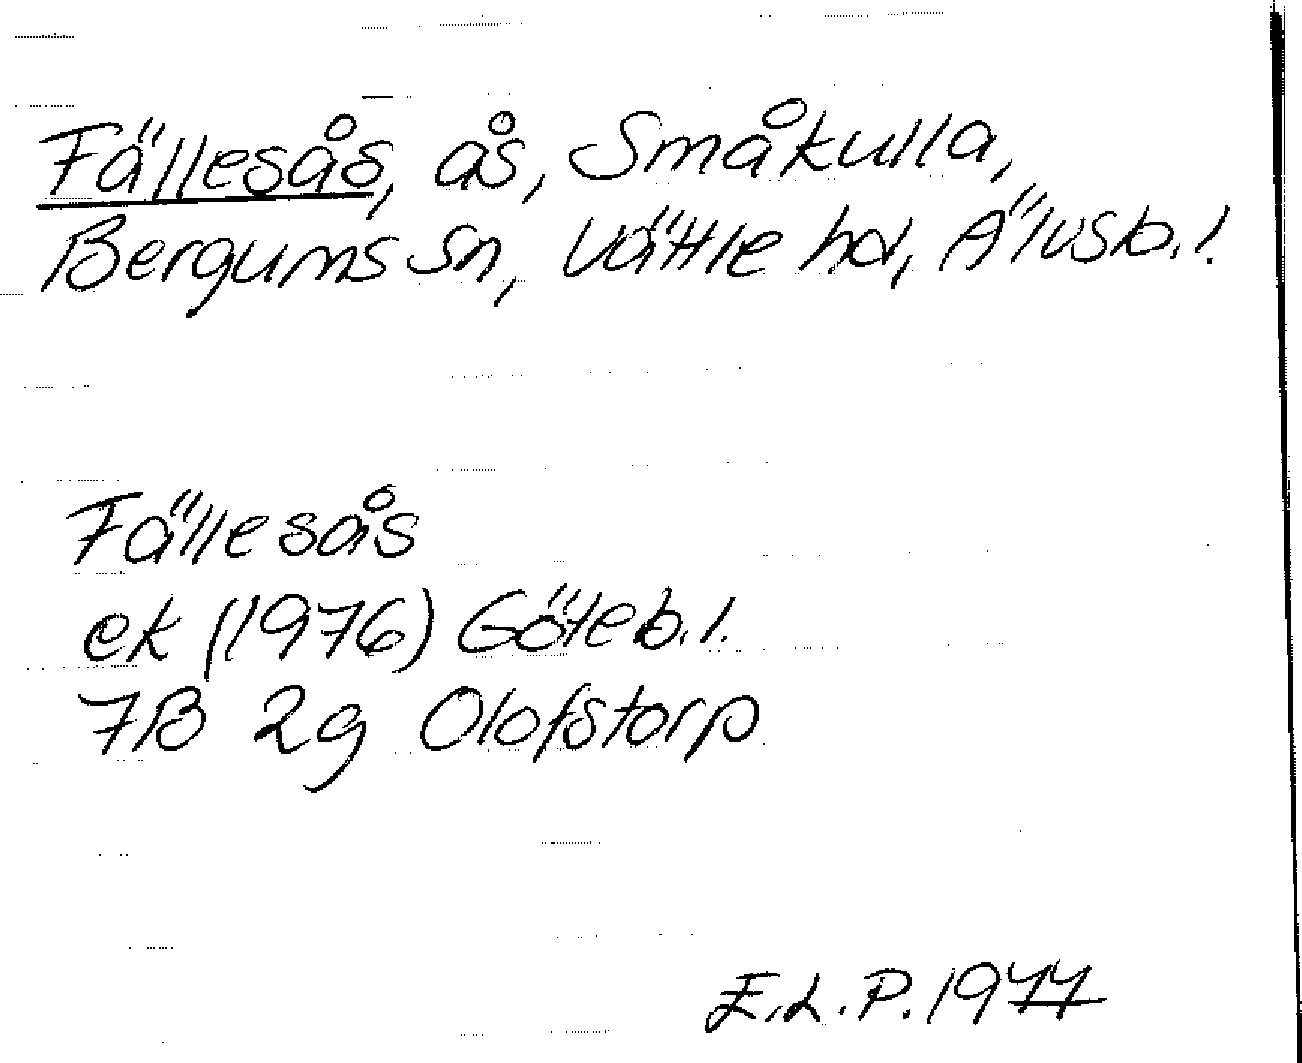 Fällesås, ås, Småkulla,
Bergums sn, Vättle hd, Älvsb.l.
Fällesås
ek (1976) Göteb.l.
7B 2g Olofstorp
E.L.P. 1977